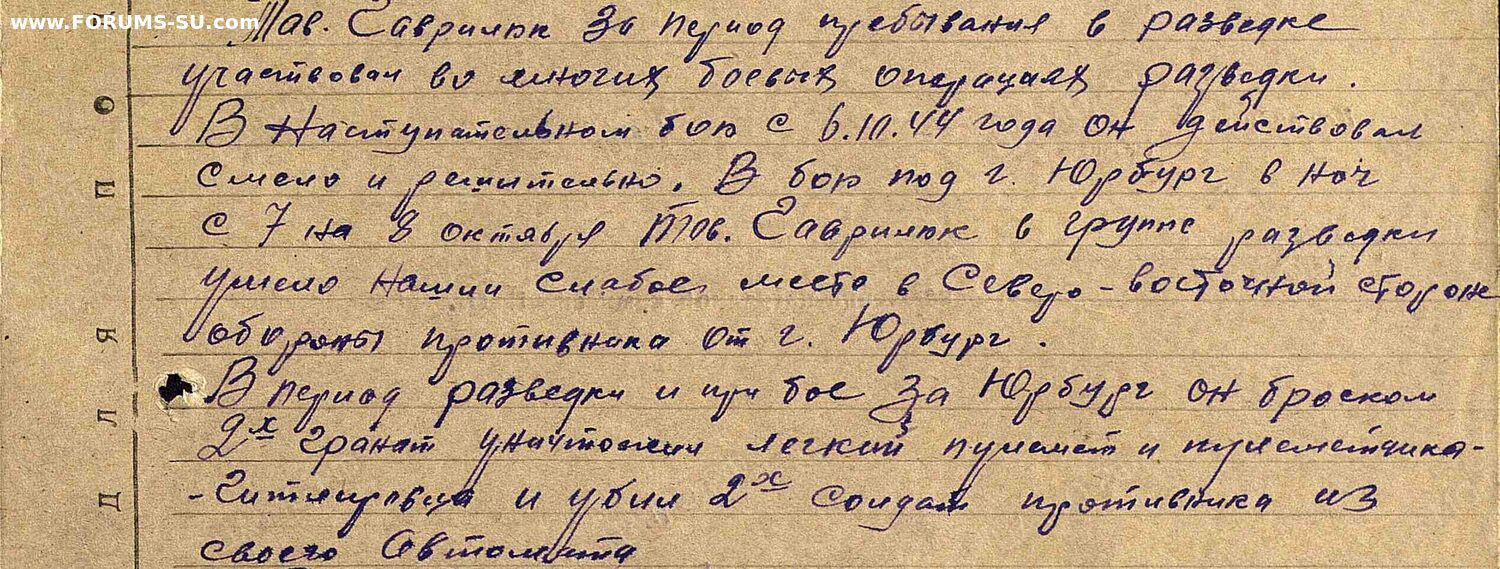 www.FORUMS-SU.com
Тов. Гаврилюк за период пребывания в разведке
участвовал во многих боевых операциях разведки.
В наступательном бою с 6.10.44 года он действовал
смело и решительно. В бою под г. Юрбург в ноч
с 7 на 8 октября тов. Гаврилюк в группе разведки
умело нашли слабое место в Северо-восточной стороне
обороны противника от г. Юрбург.
В период разведки и при бое за Юрбург он броском
2х гранат уничтожил легкий пулемет и пулеметчика-
-гитлеровца и убил 2х солдат противника из
своего автомата
Д Л Я П О